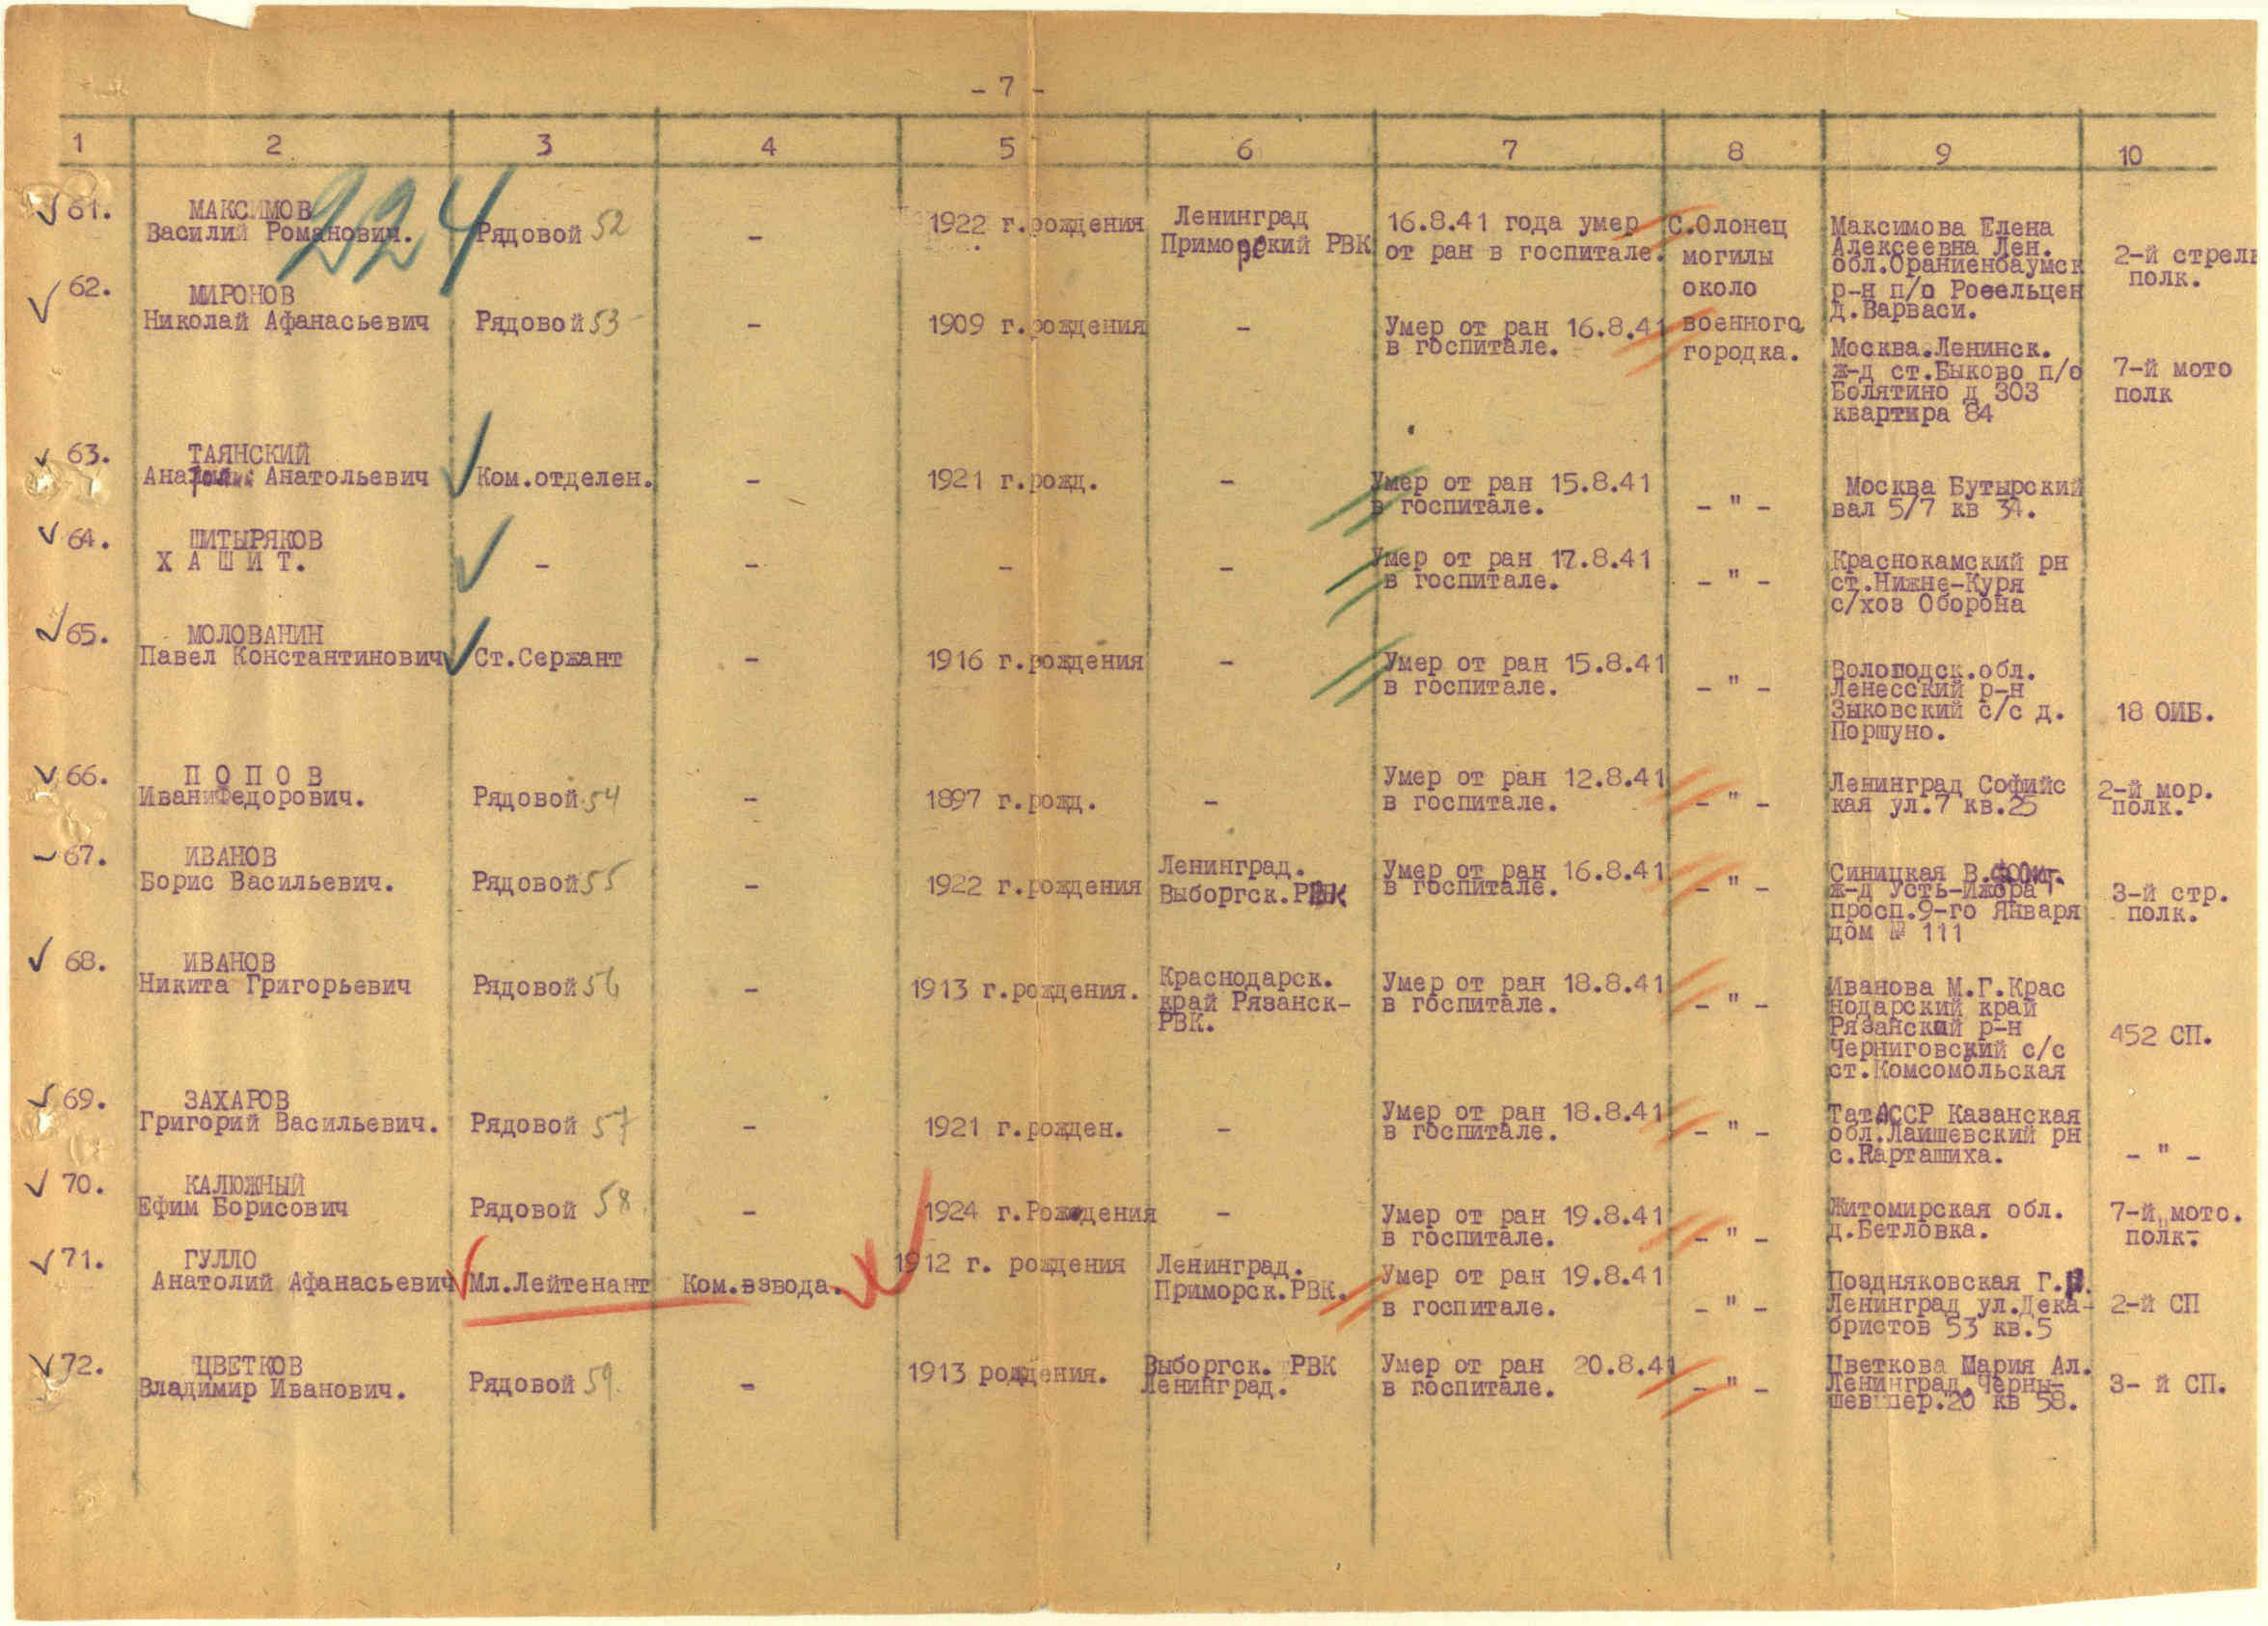 - 7 -
1 2 3 4 5 6 7 8 9 10
224
61. МАКСИМОВ
Василий Романович. Рядовой 52 - 1922 г.рождения
Ленинград
Приморский РВК
16.8.41 года умер
от ран в госпитале.
С.Олонец
могилы
около
военного
городка.
Максимова Елена
Алексеевна Лен.
обл.Ораниенбаумск
р-н п/о Ровельцен
д.Варваси.
2-й стрелк
полк.
62. МИРОНОВ
Николай Афанасьевич Рядовой 53 - 1909 г.рождения -
Умер от ран 16.8.41
в госпитале.
Москва.Ленинск.
ж-д ст.Быково п/о
Болятино д 303
квартира 84
7-й мото
полк
63. ТАЯНСКИЙ
Анатолий Анатольевич Ком.отделен. - 1921 г.рожд. -
Умер от ран 15.8.41
в госпитале.
- " -
Москва Бутырский
вал 5/7 кв 34.
64. ШИТЫРЯКОВ
Х А Ш И Т. - - - -
Умер от ран 17.8.41
в госпитале.
- " -
Краснокамский рн
ст.Нижне-Куря
с/хоз Оборона
65. МОЛОВАНИН
Павел Константинович Ст.Сержант - 1916 г.рождения -
Умер от ран 15.8.41
в госпитале.
- " -
Вологодск.обл.
Ленесский р-н
Зыковский с/с д.
Поршуно.
18 ОИБ.
66. П О П О В
Иван Федорович. Рядовой 54 - 1897 г.рожд. -
Умер от ран 12.8.41
в госпитале.
- " -
Ленинград Софийс
кая ул.7 кв.25
2-й мор.
полк.
67. ИВАНОВ
Борис Васильевич. Рядовой 55 - 1922 г.рождения
Ленинград.
Выборгск.РВК
Умер от ран 16.8.41
в госпитале.
- " -
Синицкая В.
ж-д Усть-Ижора
просп.9-го Января
дом № 111
3-й стр.
полк.
68. ИВАНОВ
Никита Григорьевич Рядовой 56 - 1913 г.рождения.
Краснодарск.
край Рязанск-
РВК.
Умер от ран 18.8.41
в госпитале.
- " -
Иванова М.Г.Крас
нодарский край
Рязанский р-н
Черниговский с/с
ст.Комсомольская
452 СП.
69. ЗАХАРОВ
Григорий Васильевич. Рядовой 57 - 1921 г.рожден. -
Умер от ран 18.8.41
в госпитале.
- " -
ТатАССР Казанская
обл.Лаишевский рн
с.Карташиха.
- " -
70. КАЛЮЖНЫЙ
Ефим Борисович Рядовой 58 - 1924 г.Рождения -
Умер от ран 19.8.41
в госпитале.
- " -
Житомирская обл.
д.Бетловка.
7-й мото.
полк.
71. ГУЛЛО
Анатолий Афанасьевич Мл.Лейтенант Ком.взвода. 1912 г. рождения
Ленинград.
Приморск.РВК.
Умер от ран 19.8.41
в госпитале.
- " -
Поздняковская Г.
Ленинград ул.Дека-
бристов 53 кв.5
2-й СП
72. ЦВЕТКОВ
Владимир Иванович. Рядовой 59. - 1913 рождения.
Выборгск. РВК
Ленинград.
Умер от ран 20.8.41
в госпитале.
- " -
Цветкова Мария Ал.
Ленинград.Черны-
шев пер.20 кв 58.
3- й СП.